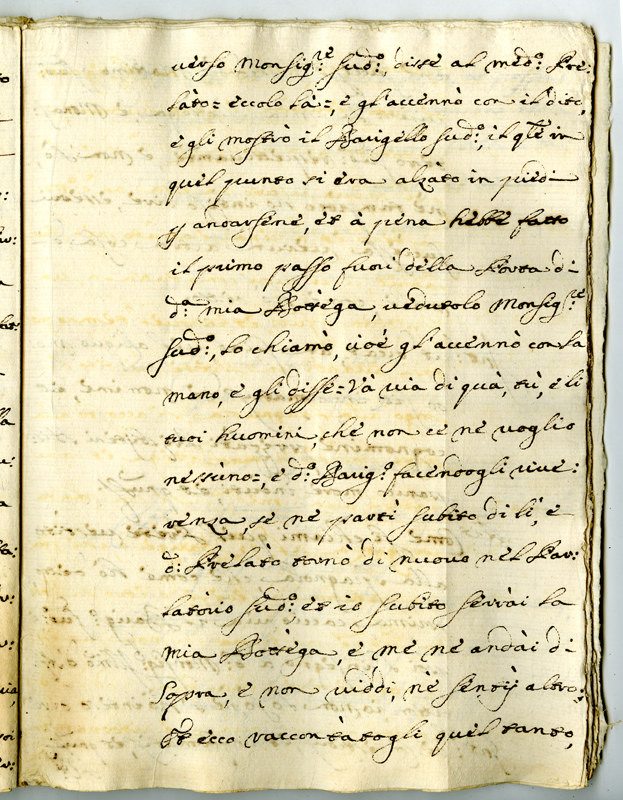 verso Monsig.re sud.o, disse al med.o Pre:
lato = eccolo là =, e gl'accennò con il dito,
e gli mostrò il Barigello sud.o, il q.le in
quel punto si era alzato in piedi
p andarsene, et à pena hebbe fatto
il primo passo fuori della Porta di
d.a mia Bottèga, vedutolo Monsig.re
sud.o, lo chiamò, cioè gl'accennò con la
mano, e gli disse = Và via di quà, tù, e li
tuoi huomini, che non ce ne voglio
nessùno =, e d.o Barig.o facendogli rive:
renza, se ne partì subito di lì, e
d.o Prelàto tornò di nuovo nel Par:
latòrio sud.o et io subito serrài la
mia Bottèga, e me ne andài di
sopra, e non viddi, nè sentij altro:
Et ecco raccontàtogli quel tanto,